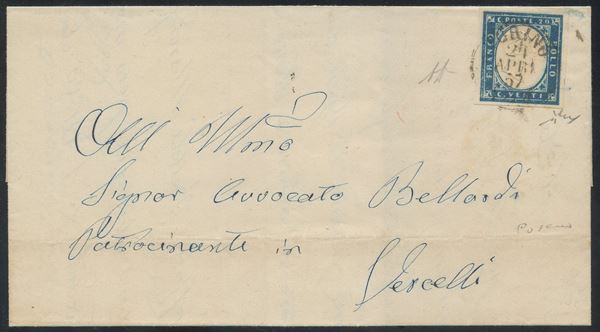 C. POSTE 20
FRANCO
BOLLO
C. VENTI
24
APRI
57
All' Illmo
Signor Avvocato Bellardi
Patrocinante in
Vercelli